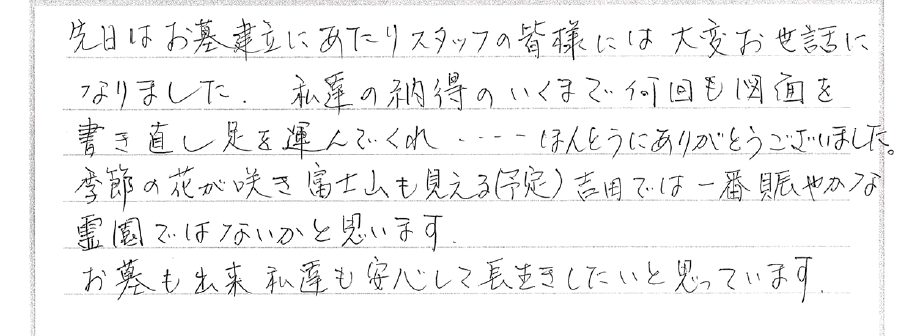 先日はお墓建立にあたりスタッフの皆様には大変お世話に
なりました. 私達の納得のいくまで何回も図面を
書き直し足を運んでくれ・・・・ーほんとうにありがとうございました。
季節の花が咲き富士山も見える(予定)吉田では一番賑やかな
霊園ではないかと思います.
お墓も出来私達も安心して長生きしたいと思っています.